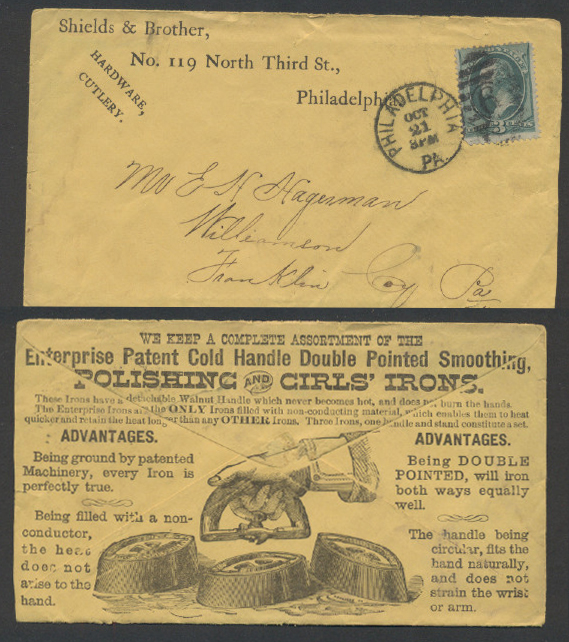 Shields & Brother,
No. 119 North Third St.,
Philadelphia
HARDWARE,
CUTLERY.
PHILADELPHIA
OCT
21
3PM
PA.
3 CENTS
Mr E N Hagerman
Williamson
Franklin Coy Pa
WE KEEP A COMPLETE ASSORTMENT OF THE
Enterprise Patent Cold Handle Double Pointed Smoothing,
POLISHING AND GIRLS' IRONS.
These Irons have a detachable Walnut Handle which never becomes hot, and does not burn the hands.
The Enterprise Irons are the ONLY Irons filled with non-conducting material, which enables them to heat
quicker and retain the heat longer than any OTHER Irons. Three Irons, one handle and stand constitute a set.
ADVANTAGES.
Being ground by patented
Machinery, every Iron is
perfectly true.
Being filled with a non-
conductor,
the heat
does not
arise to the
hand.
ADVANTAGES.
Being DOUBLE
POINTED, will iron
both ways equally
well.
The handle being
circular, fits the
hand naturally,
and does not
strain the wrist
or arm.